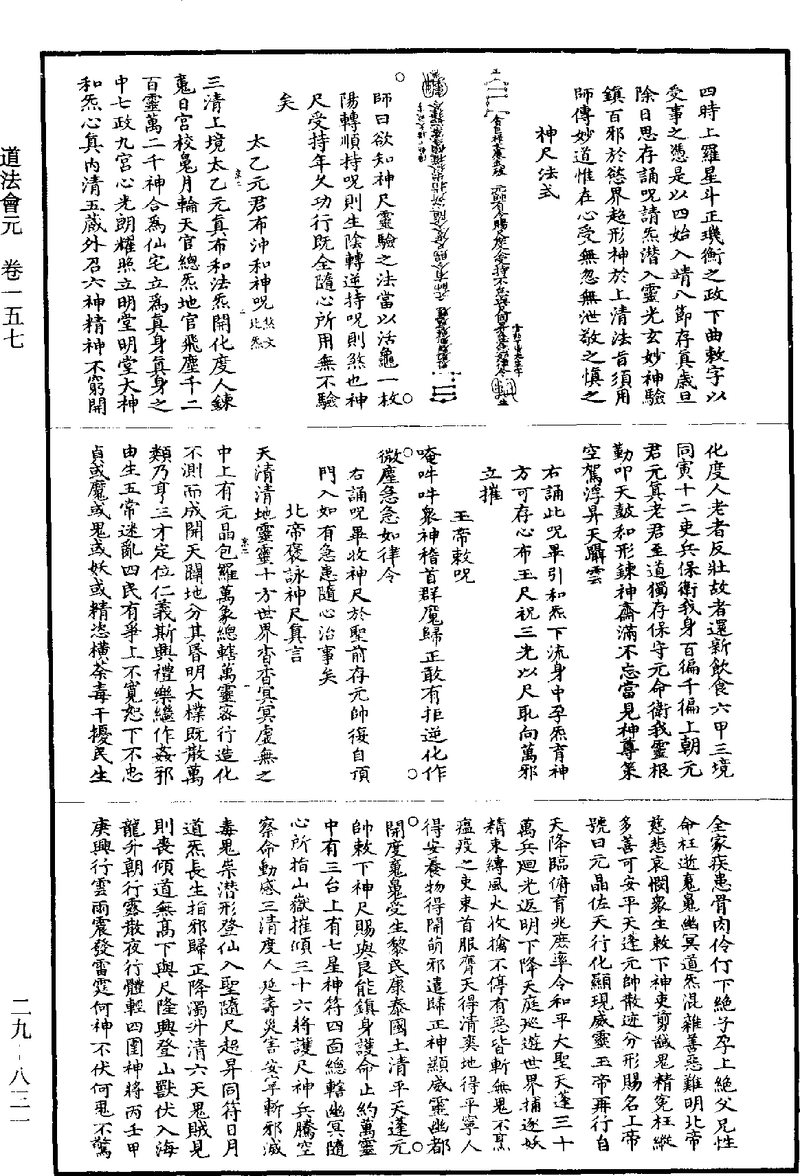 道法會元 卷一五七
二九‐八二一
四時上羅星斗正璣衡之政下曲敕字以
受事之憑是以四始入靖八節存真歲旦
除日思存誦呪請炁潛入靈光玄妙神驗
鎮百邪於慾界超形神於上清法旨須用
師傳妙道惟在心受無忽無泄敬之慎之
神尺法式
師曰欲知神尺靈驗之法當以活龜一枚
陽轉順持呪則生陰轉逆持呪則煞也神
尺受持年久功行既全隨心所用無不驗
矣
太乙元君布沖和神呪
三清上境太乙元真布和法炁開化度人鍊
䰟日宮校䰟月輪天官總炁地官飛塵千二
百靈萬二千神合為仙宅立為真身真身之
中七政九宮心光朗耀照立明堂明堂大神
和炁心真內清五藏外召六神精神不窮開
化度人老者反壯故者還新飲食六甲三境
同寅十二吏兵保衛我身百徧千徧上朝元
君元真老君至道獨存保守元命衛我靈根
勤叩天鼓和形鍊神齋滿不忘當見神尊策
空駕浮昇天躡雲
右誦此呪畢引和炁下流身中孕炁育神
方可存心布玉尺祝三光以尺耴向萬邪
立摧
玉帝敕呪
唵吽吽眾神稽首群魔歸正敢有拒逆化作
微塵急急如律令
右誦呪畢收神尺於聖前存元帥復自頂
門入如有急患隨心治事矣
北帝褒詠神尺真言
天清清地靈靈十方世界杳杳冥冥虛無之
中上有元晶包羅萬象總轄萬靈密行造化
不測而成開天闢地分其昏明大樸既散萬
類乃亨三才定位仁義斯興禮樂繼作姦邪
由生五常迷亂四民有爭上不寬恕下不忠
貞或魔或鬼或妖或精恣橫荼毒干擾民生
全家疾患骨肉伶仃下絕子孕上絕父兄性
命枉逝䰟䰟幽冥道炁混雜善惡難明北帝
慈悲哀憫眾生敕下神吏剪馘鬼精冤枉縱
多善可安平天蓬元帥散迹分形賜名上帝
號曰元晶佐天行化顯現威靈玉帝再行自
天降臨俯育兆庶率令和平大聖天蓬三十
萬兵廻光返明下降天庭巡遊世界捕逐妖
精束縛風火收擒不停有惡皆斬無鬼不烹
瘟疫之吏束首服膺天得清爽地得平寧人
得安養物得開萌邪遣歸正神顯威靈幽都
開度䰟䰟受生黎民康泰國土清平天蓬元
帥敕下神尺賜與良能鎮身護命止約萬靈
中有三台上有七星神符四面總轄幽冥隨
心所指山嶽摧傾三十六將護尺神兵騰空
察命動感三清度人延壽災害安寧斬邪滅
毒鬼祟潛形登仙入聖隨尺超昇同符日月
道炁長生指邪歸正降濁升清六天鬼賊見
則喪傾道無高下與尺隆興登山獸伏入海
龍升朝行露散夜行體輕四圍神將丙壬甲
庚興行雲雨震發雷霆何神不伏何鬼不驚